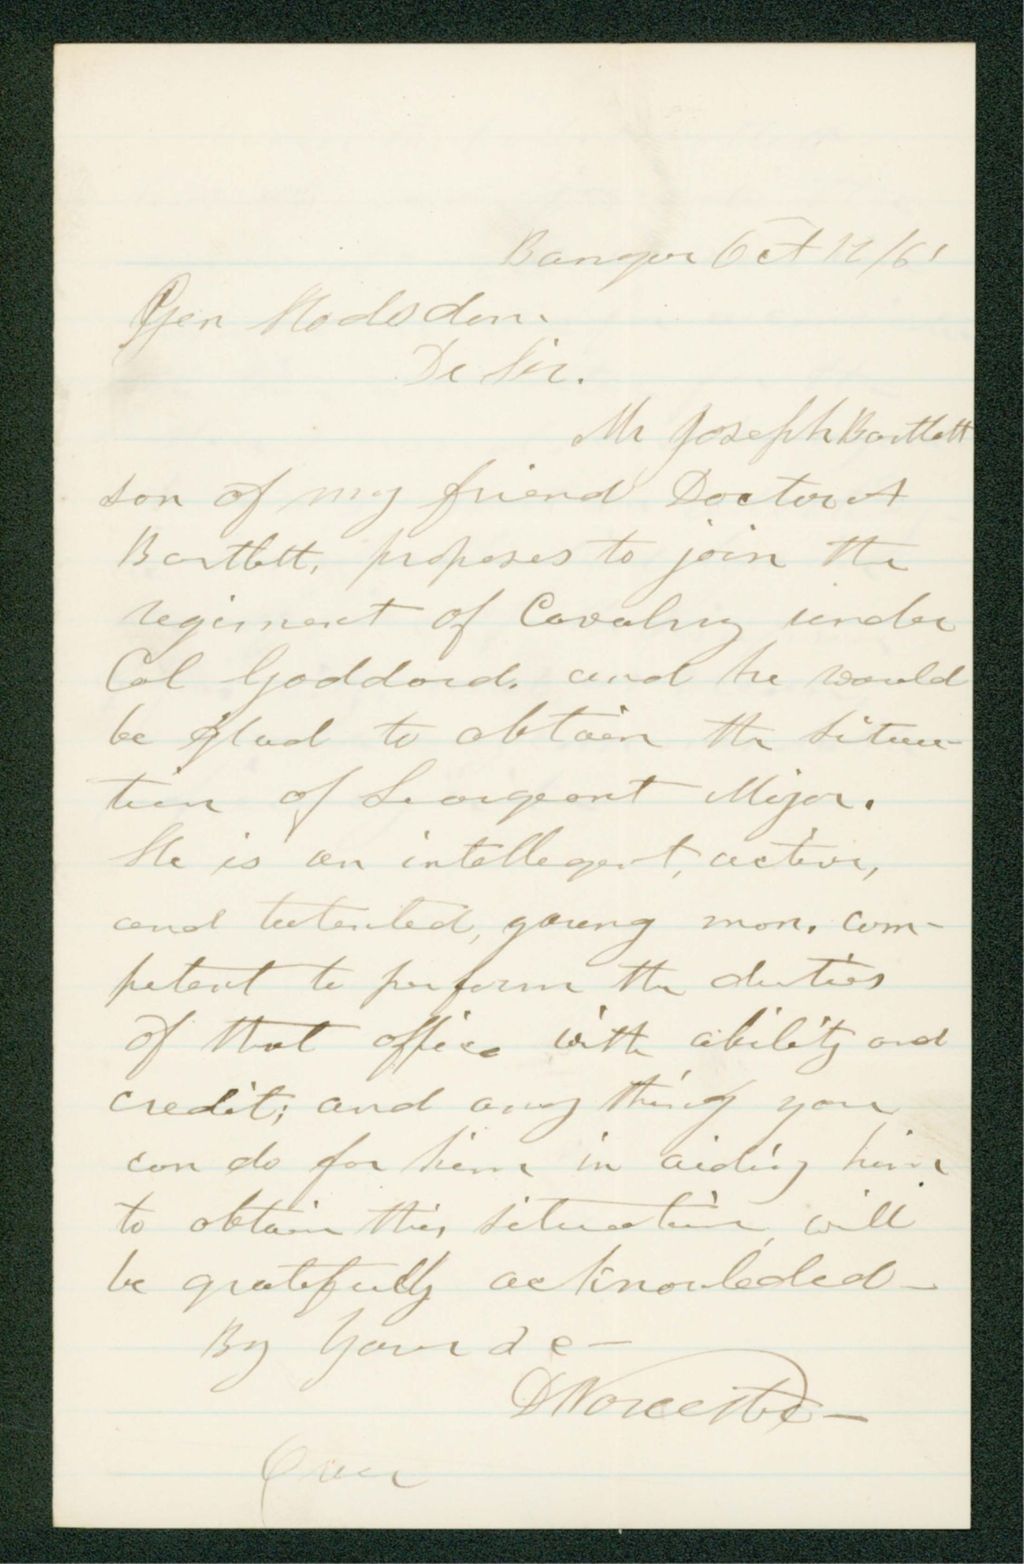 Bangor Oct 12/61
Gen Hodsdon.
De Sir.
Mr Joseph Bartlett
son of my friend Doctor A
Bartlett, proposes to join the
regiment of Cavalry under
Col Goddard. and he would
be glad to obtain the situa-
tion of Seargeant Major.
He is an intellegent, active,
and talented, young man. com-
petent to perform the duties
of that office with ability and
credit; and any thing you
can do for him in aiding him
to obtain this situation, will
be gratefully acknowleded—
By Yours &c—
D Worcester—
Over